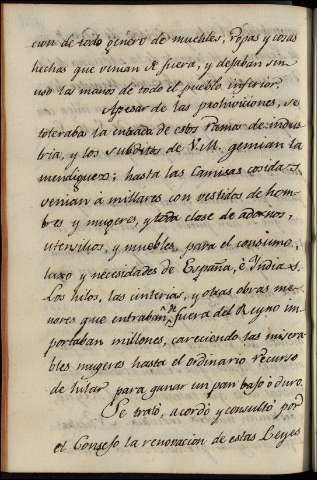 cion de todo genero de muebles, ropas y cosas
hechas que venian de fuera, y dejaban sin
uso las manos de todo el pueblo inferior.
Apesar de las prohiviciones, se
toleraba la entrada de estos Ramos de indus
tria, y los subditos de V.M. gemian la
mendiguez; hasta las Camisas cosidas
venian á millares con vestidos de hom-
bres y mugeres, y toda clase de adornos,
utensilios, y muebles, para el consumo,
luxo y necesidades de España, é Indias.
Los hilos, las cinterias, y otras obras me-
nores que entraban de fuera del Reyno im
portaban millones, careciendo las misera
bles mugeres hasta el ordinario recurso
de hilar para ganar un pan bajo ó duro.
Se trató, acordó y consultó por
el Consejo la renovacion de estas Leyes